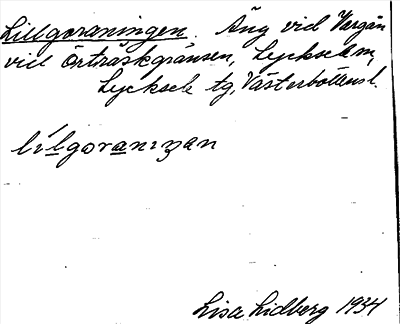 Lillgoraningen. Äng vid Vargån
vid Örträskgränsen, Lycksele m,
Lycksele tg, Västerbottens l.
lílgoraniŋan
Lisa Lidberg 1934